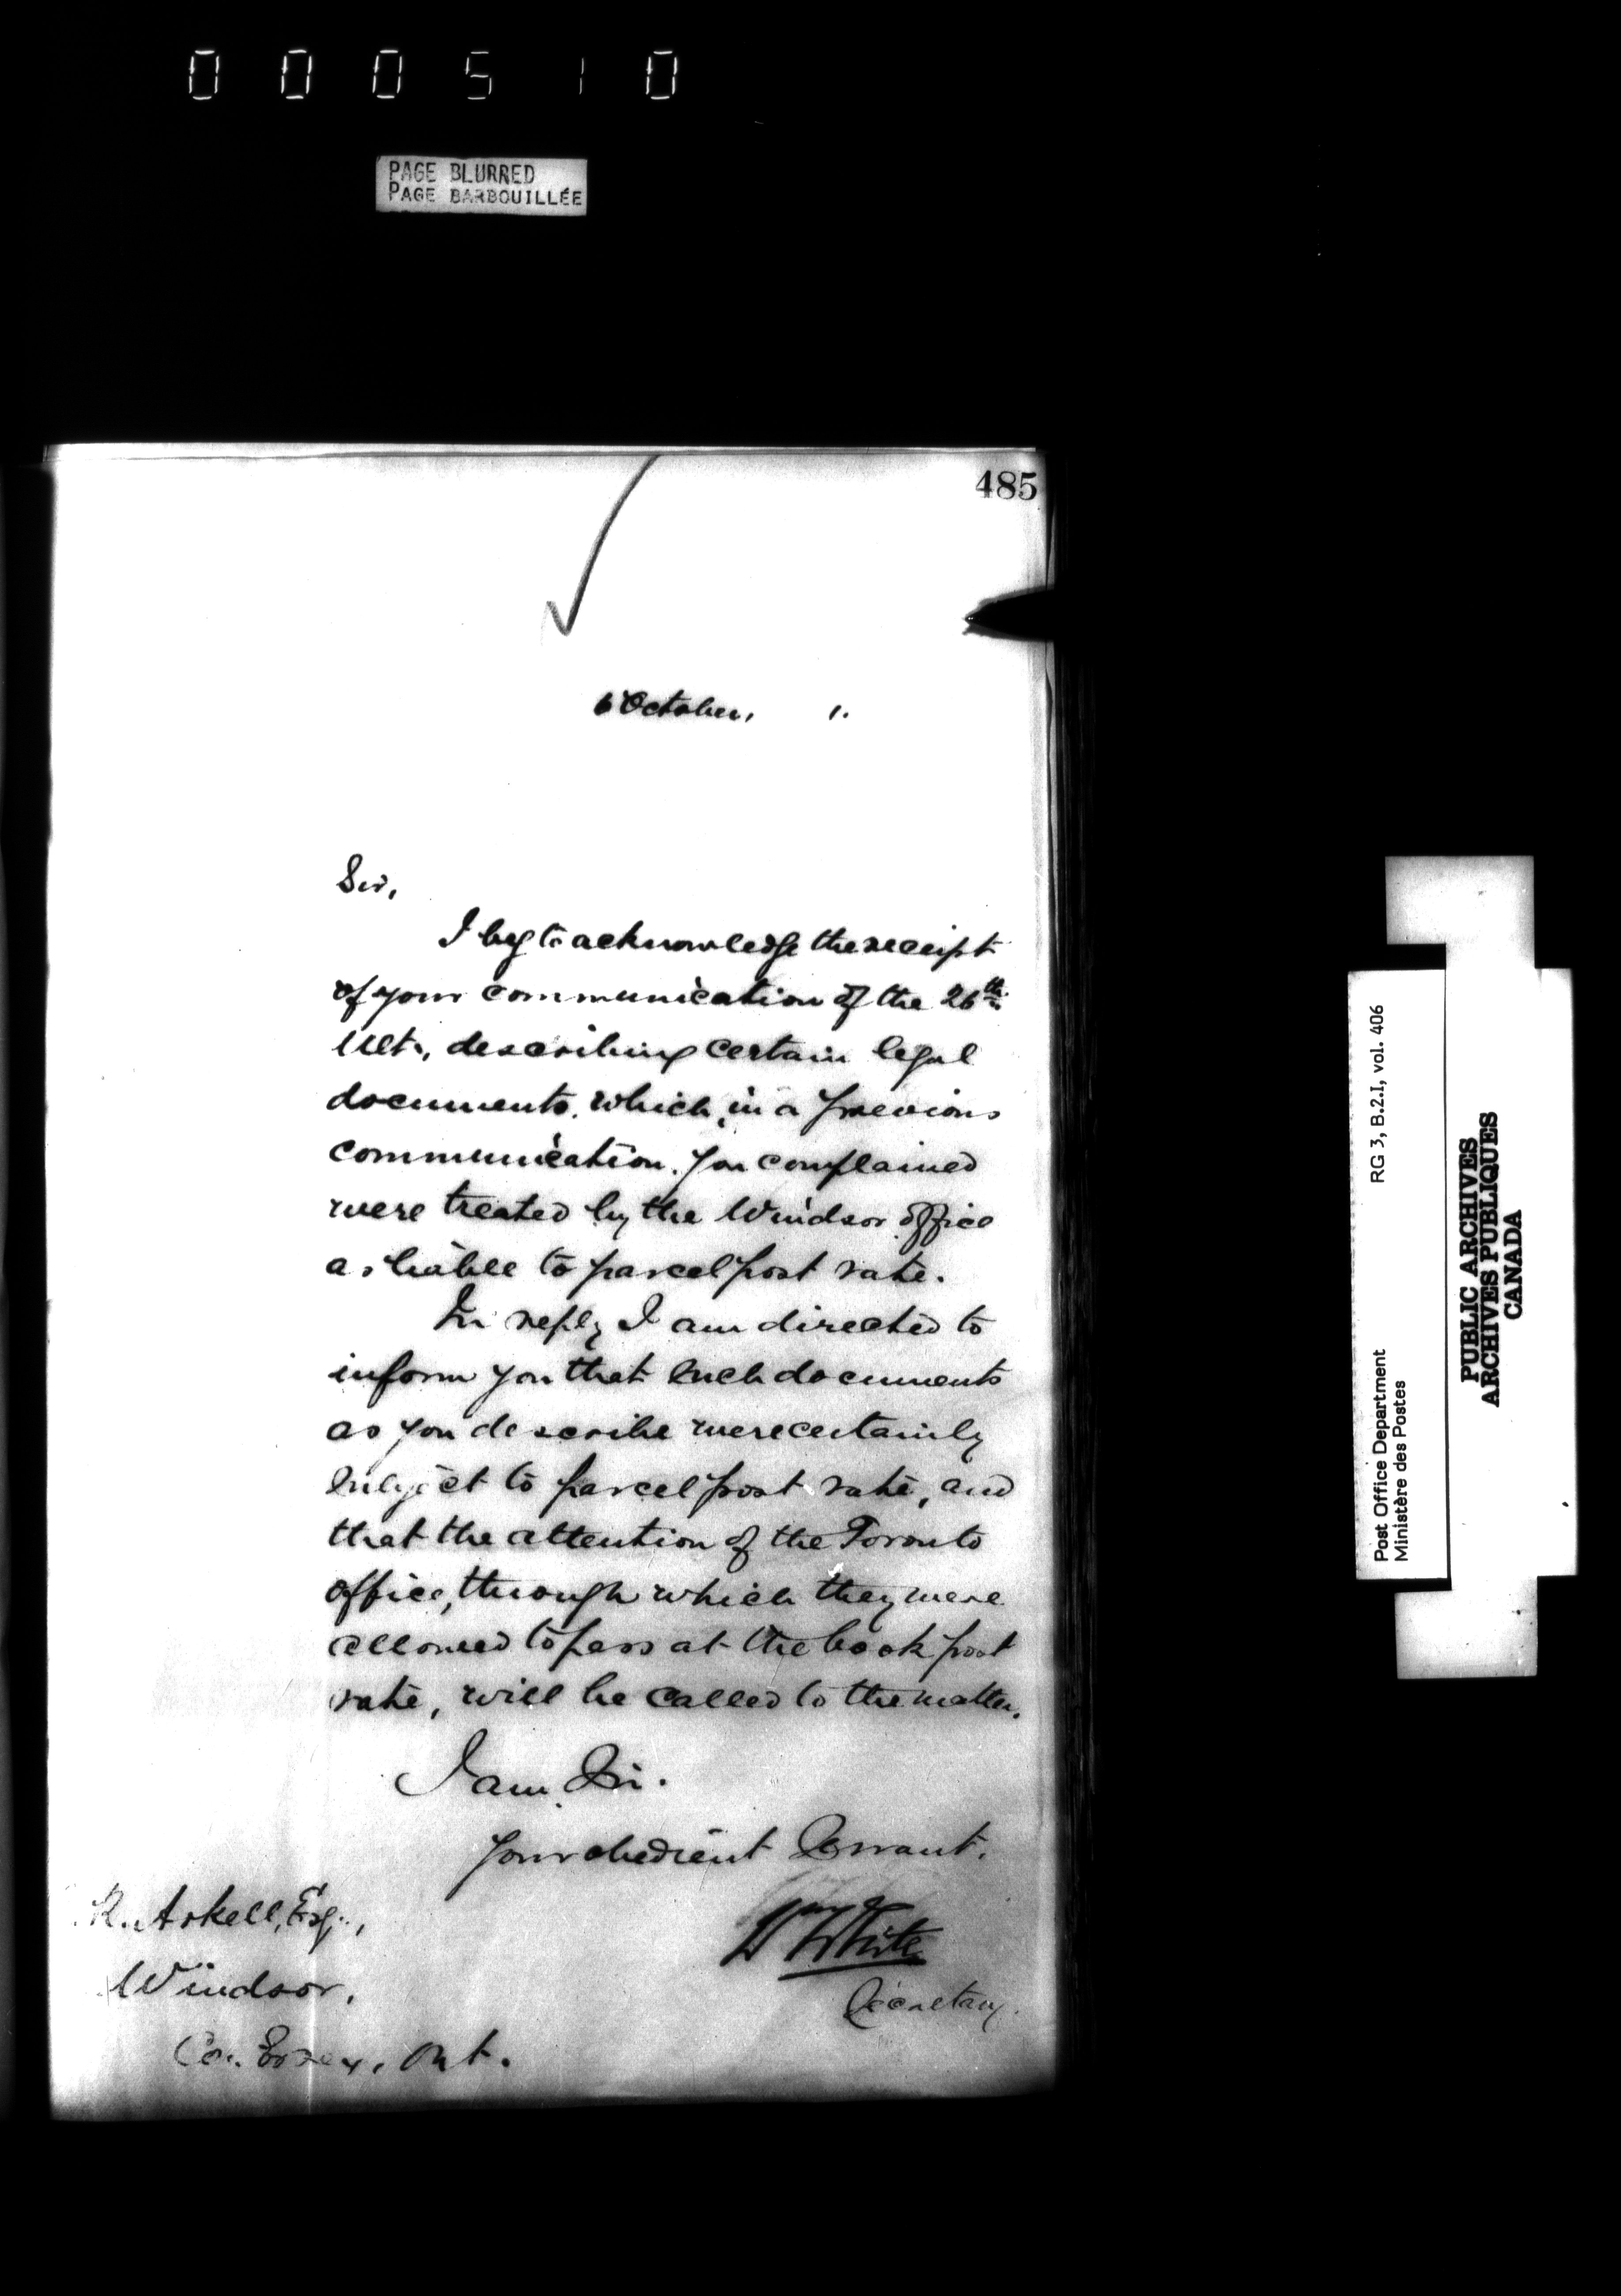 000510
PAGE BLURRED
PAGE BARBOUILLÉE
485
6 October, 1.
Sir,
I beg to acknowledge the receipt
of your communication of the 26th
Ult., describing certain legal
documents, which, in a previous
communication, you complained
were treated by the Windsor office
as liable to parcel post rate.
In reply I am directed to
inform you that such documents
as you describe were certainly
subject to parcel post rate, and
that the attention of the Toronto
office, through which they were
allowed to pass at the book post
rate, will be called to the matter.
I am, Sir.
Your obedient Servant.
Wm White
Secretary.
R. Askell, Esq.,
Windsor,
Co. Essex, Ont.
RG 3, B.2.I, vol. 406
Post Office Department
Ministère des Postes
PUBLIC ARCHIVES
ARCHIVES PUBLIQUES
CANADA